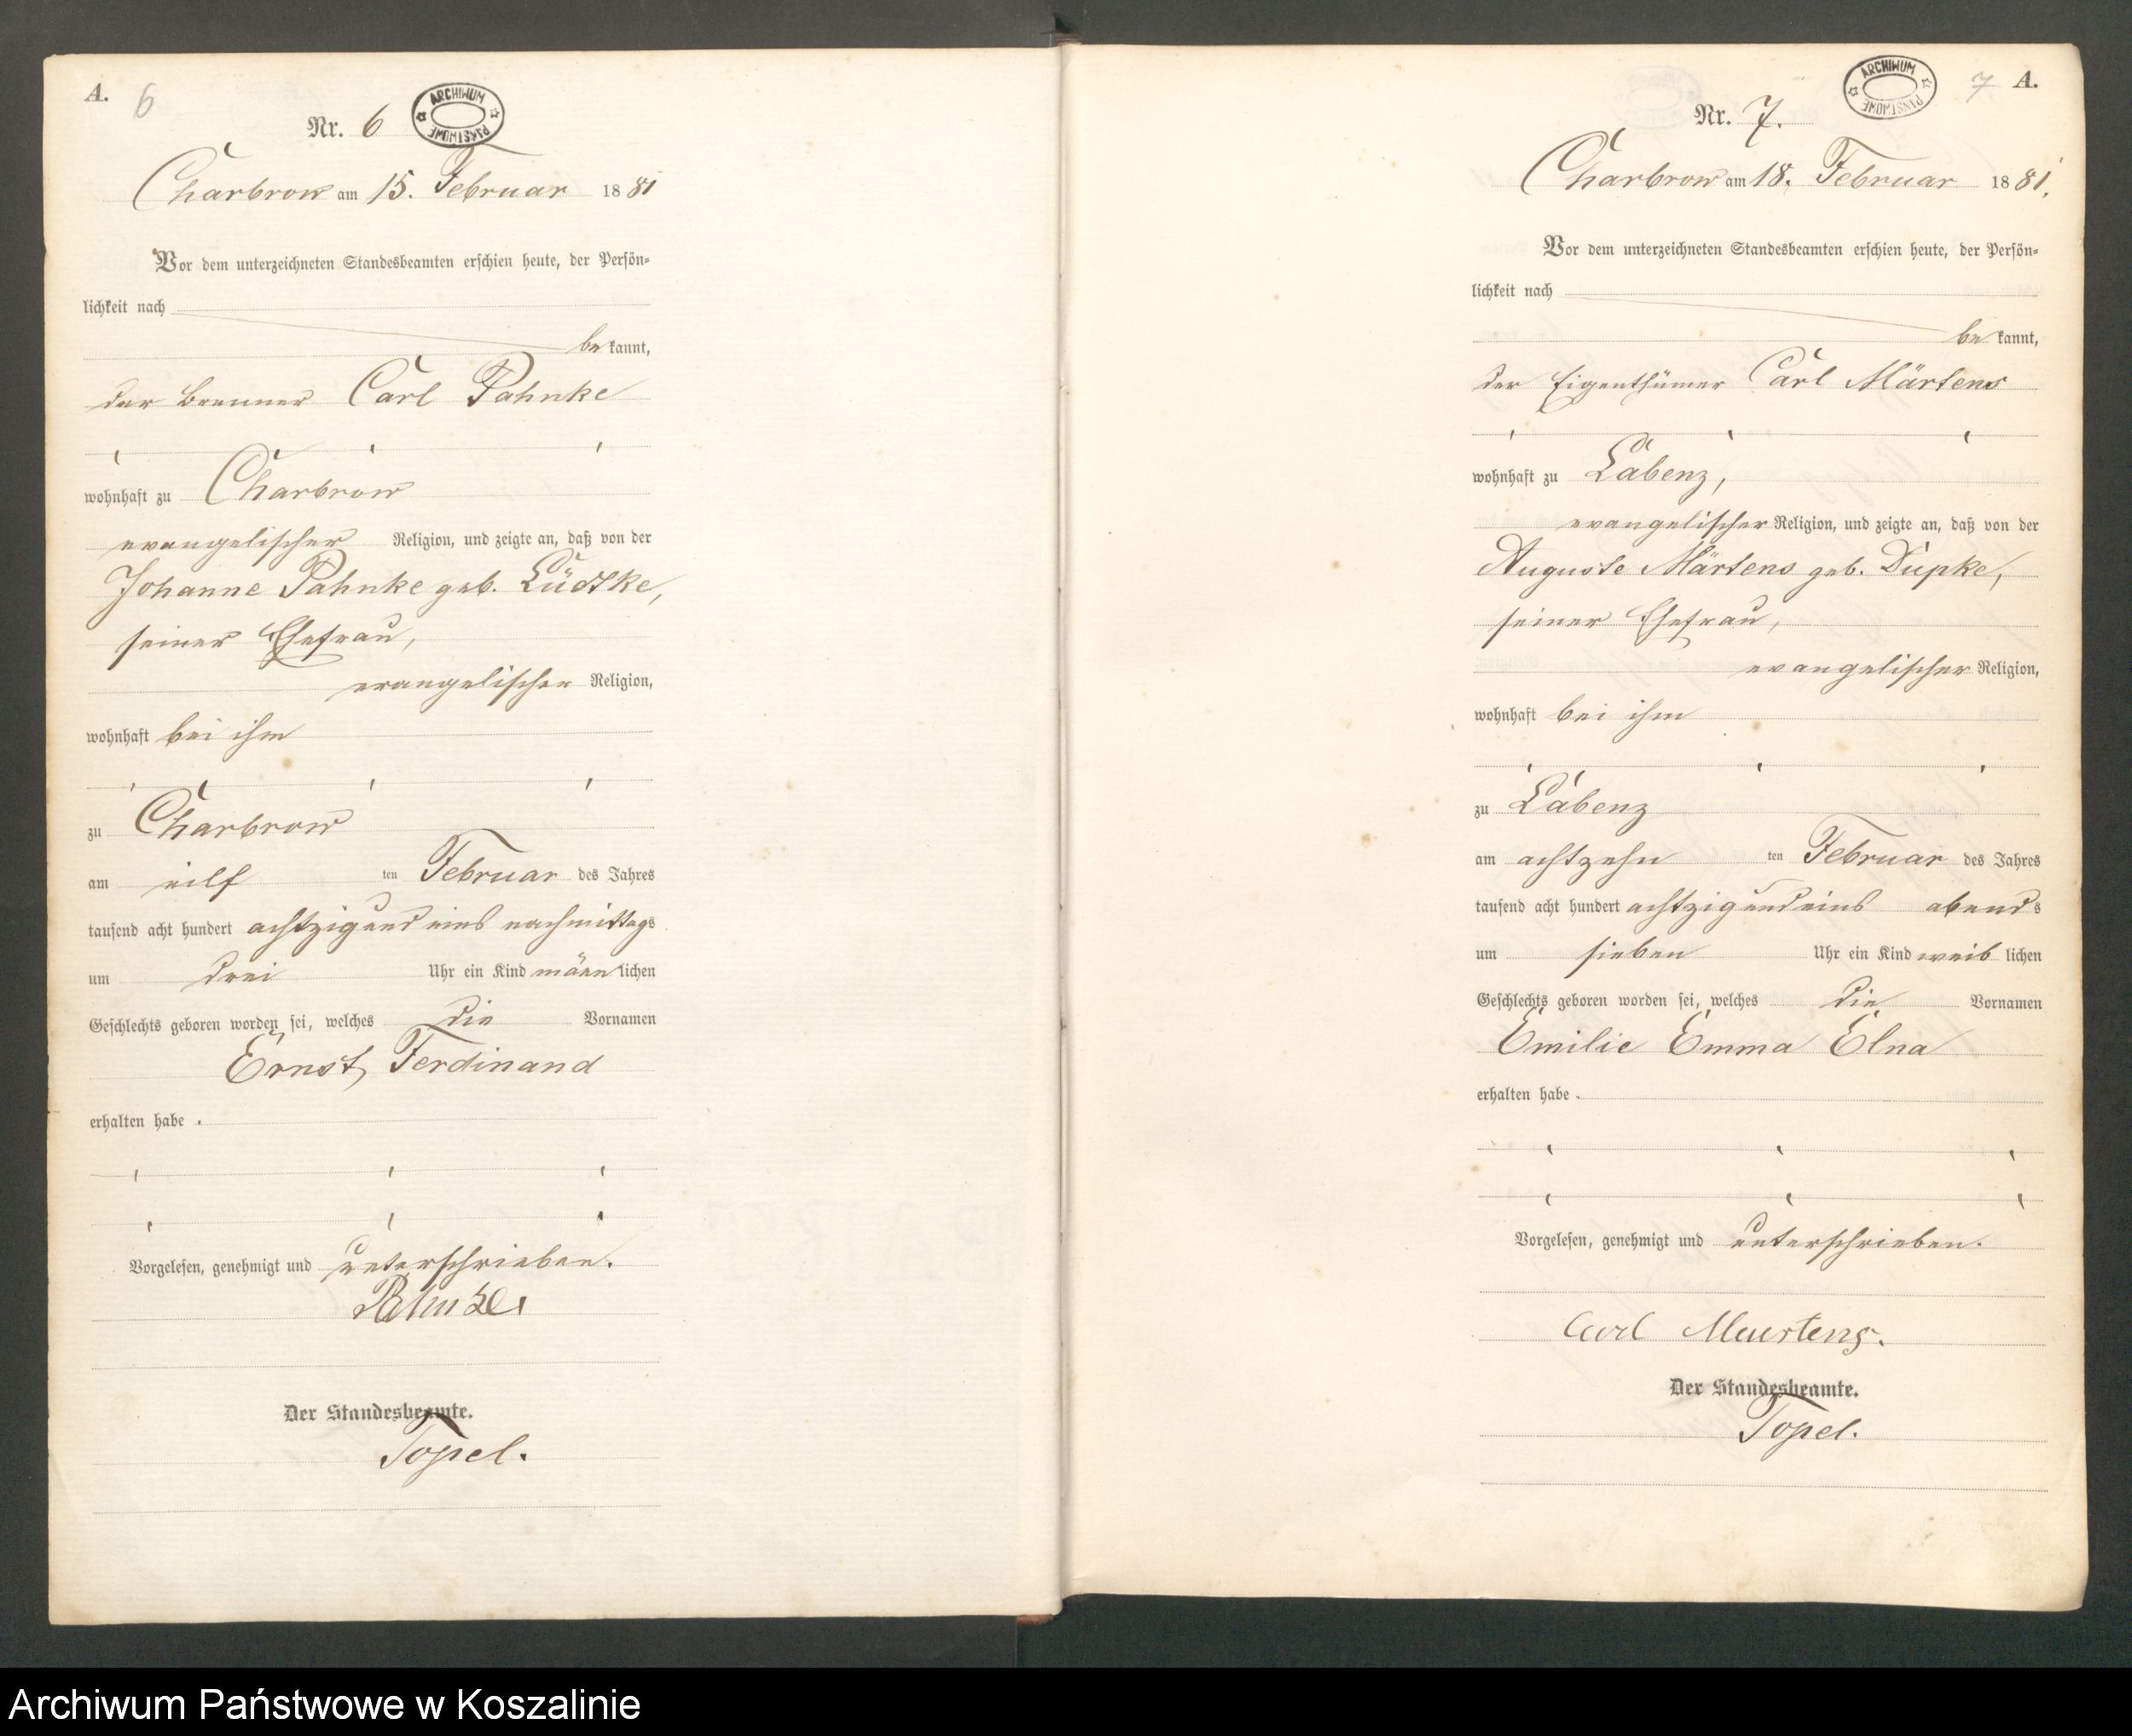 A. 6
ARCHIWUM PAŃSTWOWE
Nr. 6
Charbrow am 15. Februar 1881
Vor dem unterzeichneten Standesbeamten erschien heute, der Persön=
lichkeit nach
bekannt,
der Brenner Carl Pahnke
wohnhaft zu Charbrow
evangelischer Religion, und zeigte an, daß von der
Johanne Pahnke geb. Lüdtke,
seiner Ehefrau,
evangelischer Religion,
wohnhaft bei ihm
zu Charbrow
am eilf ten Februar des Jahres
tausend acht hundert achtzig und eins nachmittags
um drei Uhr ein Kind männlichen
Geschlechts geboren worden sei, welches die Vornamen
Ernst, Ferdinand
erhalten habe.
Vorgelesen, genehmigt und unterschrieben.
Pahnke
Der Standesbeamte.
Topel.
7 A.
ARCHIWUM PAŃSTWOWE
Nr. 7.
Charbrow am 18. Februar 1881.
Vor dem unterzeichneten Standesbeamten erschien heute, der Persön=
lichkeit nach
bekannt,
der Eigenthümer Carl Märtens
wohnhaft zu Labenz,
evangelischer Religion, und zeigte an, daß von der
Auguste Märtens geb. Düpke,
seiner Ehefrau,
evangelischer Religion,
wohnhaft bei ihm
zu Labenz
am achtzehn ten Februar des Jahres
tausend acht hundert achtzig und eins abends
um sieben Uhr ein Kind weiblichen
Geschlechts geboren worden sei, welches die Vornamen
Emilie Emma Elna
erhalten habe.
Vorgelesen, genehmigt und unterschrieben.
Carl Maertens.
Der Standesbeamte.
Topel.
Archiwum Państwowe w Koszalinie